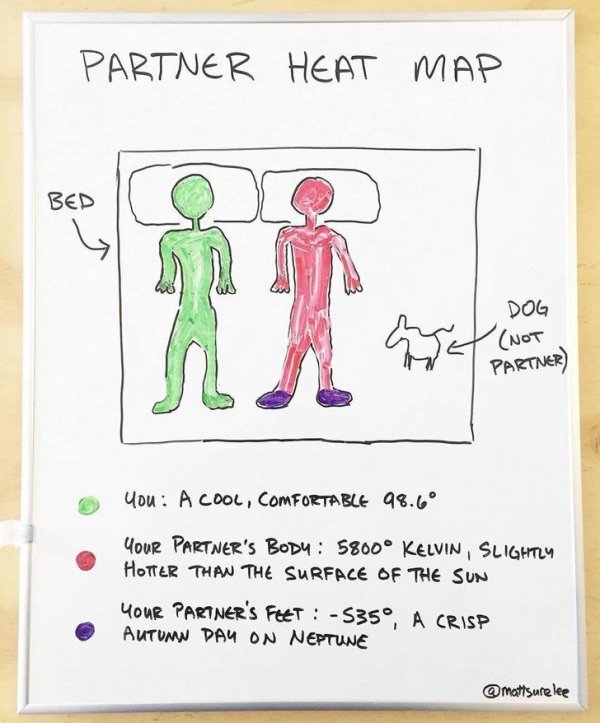 PARTNER HEAT MAP
BED
DOG
(NOT
PARTNER)
YOU: A COOL, COMFORTABLE 98.6°
YOUR PARTNER'S BODY: 5800° KELVIN, SLIGHTLY
HOTTER THAN THE SURFACE OF THE SUN
YOUR PARTNER'S FEET: -535°, A CRISP
AUTUMN DAY ON NEPTUNE
@mattsurelee